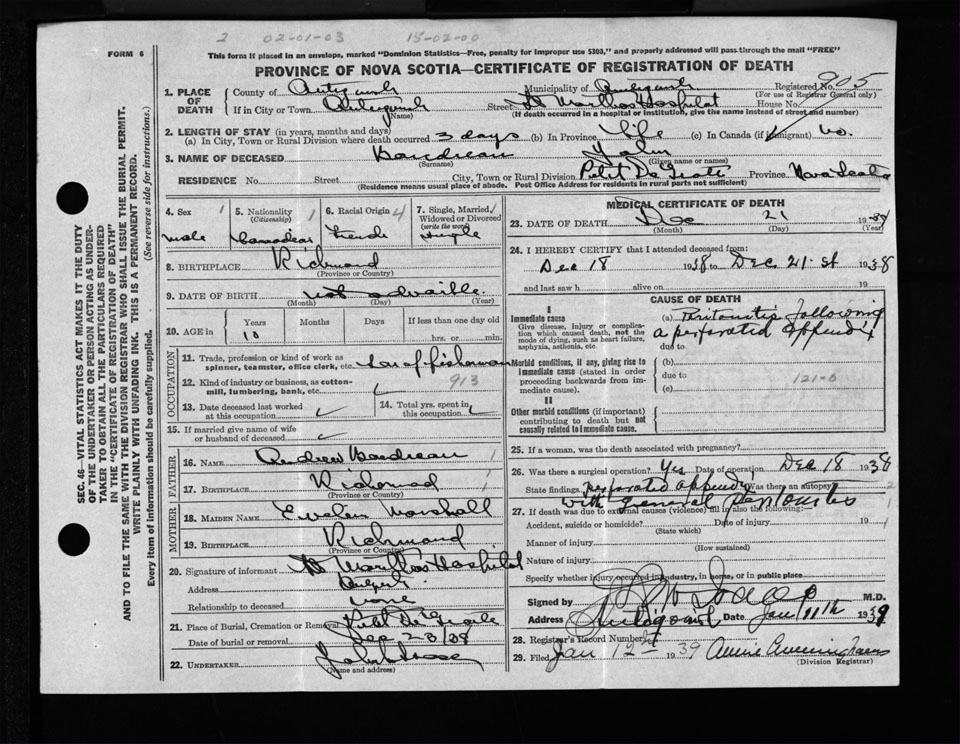 2 02-01-03 15-02-00
FORM 6
This form if placed in an envelope, marked "Dominion Statistics—Free, penalty for improper use $300," and properly addressed will pass through the mail "FREE"
PROVINCE OF NOVA SCOTIA—CERTIFICATE OF REGISTRATION OF DEATH
1. PLACE OF DEATH
County of Municipality of Registered No. 905
(For use of Registrar General only)
If in City or Town (Name) Street St Marthas Hospital House No.
(If death occurred in a hospital or institution, give the name instead of street and number)
2. LENGTH OF STAY (in years, months and days)
(a) In City, Town or Rural Division where death occurred 3 days (b) In Province Life (c) In Canada (if immigrant)
3. NAME OF DECEASED Boudreau John
(Surname) (Given name or names)
RESIDENCE No. Street City, Town or Rural Division Petit De Grat Province Nova Scotia
(Residence means usual place of abode. Post Office Address for residents in rural parts not sufficient)
4. Sex 1 male
5. Nationality (Citizenship) 1
6. Racial Origin 4 French
7. Single, Married, Widowed or Divorced (write the word) 1 single
8. BIRTHPLACE Richmond
(Province or Country)
9. DATE OF BIRTH not
(Month) (Day) (Year)
10. AGE in Years Months Days If less than one day old
hrs. or min.
OCCUPATION
11. Trade, profession or kind of work as spinner, teamster, office clerk, etc. son of fisherman
12. Kind of industry or business, as cotton-mill, lumbering, bank, etc. 913
13. Date deceased last worked at this occupation
14. Total yrs. spent in this occupation
15. If married give name of wife or husband of deceased
FATHER
16. NAME Andrew Boudreau 1
17. BIRTHPLACE Richmond
(Province or Country)
MOTHER
18. MAIDEN NAME Marshall
19. BIRTHPLACE Richmond
(Province or Country)
20. Signature of informant St Marthas Hospital
Address
Relationship to deceased none
21. Place of Burial, Cremation or Removal Petit De Grat
Date of burial or removal Dec 23/38
22. UNDERTAKER
(Name and address)
MEDICAL CERTIFICATE OF DEATH
23. DATE OF DEATH Dec 21 1938
(Month) (Day) (Year)
24. I HEREBY CERTIFY that I attended deceased from:
Dec 18 1938 to Dec 21st 1938
and last saw h alive on 19
CAUSE OF DEATH
I
Immediate cause
Give disease, injury or complication which caused death, not the mode of dying, such as heart failure, asphyxia, asthenia, etc.
(a) Peritonitis following
a perforated appendix
due to
Morbid conditions, if any, giving rise to immediate cause (stated in order proceeding backwards from immediate cause).
(b)
due to 121-0
(c)
II
Other morbid conditions (if important) contributing to death but not causally related to immediate cause.
25. If a woman, was the death associated with pregnancy?
26. Was there a surgical operation? Yes Date of operation Dec 18 1938
State findings perforated appendix Was there an autopsy? 2
with general peritonitis
27. If death was due to external causes (violence) fill in also the following:—
Accident, suicide or homicide? Date of injury 19
(State which)
Manner of injury
(How sustained)
Nature of injury
Specify whether injury occurred in industry, in home, or in public place
Signed by M.D.
Address Antigonish Date Jan 11th 1939
28. Registrar's Record Number
29. Filed Jan 12th 1939 Annie Cunningham
(Division Registrar)
SEC. 46- VITAL STATISTICS ACT MAKES IT THE DUTY OF THE UNDERTAKER OR PERSON ACTING AS UNDERTAKER TO OBTAIN ALL THE PARTICULARS REQUIRED IN THE "CERTIFICATE OF REGISTRATION OF DEATH"
AND TO FILE THE SAME WITH THE DIVISION REGISTRAR WHO SHALL ISSUE THE BURIAL PERMIT.
WRITE PLAINLY WITH UNFADING INK. THIS IS A PERMANENT RECORD.
Every item of information should be carefully supplied. (See reverse side for instructions.)